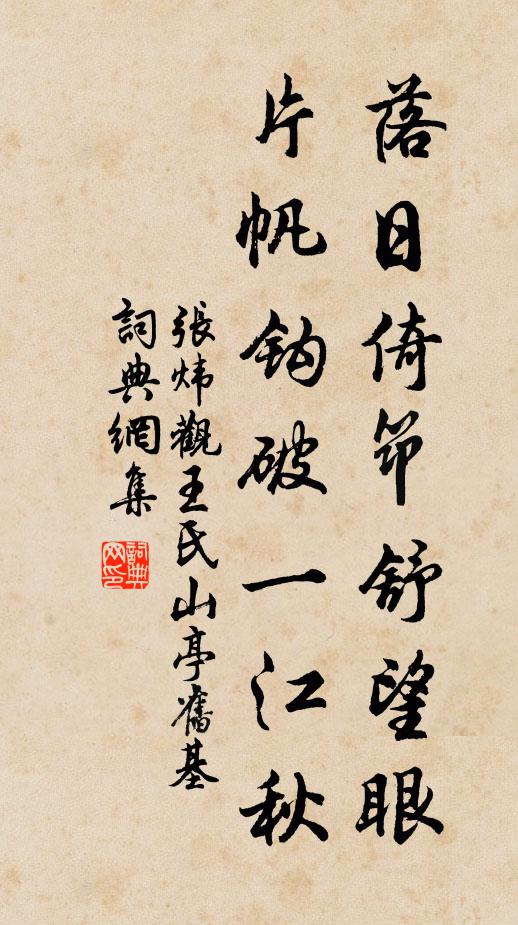 落日倚筇舒望眼
片帆鈎破一江秋
張煒觀王氏山亭舊基
詞典網集
詞典網印